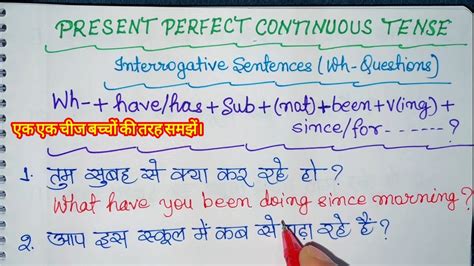 PRESENT PERFECT CONTINUOUS TENSE
Interrogative Sentences (Wh-Questions)
Wh- + have/has + Sub + (not) + been + V(ing) +
एक एक चीज बच्चों की तरह समझें।
since/for ------- ?
1. तुम सुबह से क्या कर रहे हो ?
What have you been doing since morning ?
2. आप इस स्कूल में कब से पढ़ा रहे हैं ?